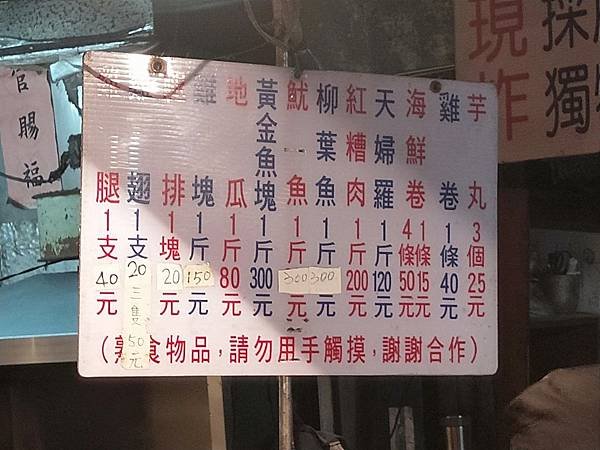 現炸
採獨
芋丸3個25元
雞卷1條40元
海鮮卷1條15元
4條50元
天婦羅1斤120元
紅糟肉1斤200元
柳葉魚1斤300元
魷魚1斤300元
黃金魚塊1斤300元
地瓜1斤80元
雞塊1斤150元
排1塊20元
翅1支20三隻50元
腿1支40元
(食物品,請勿用手觸摸,謝謝合作)
官賜福